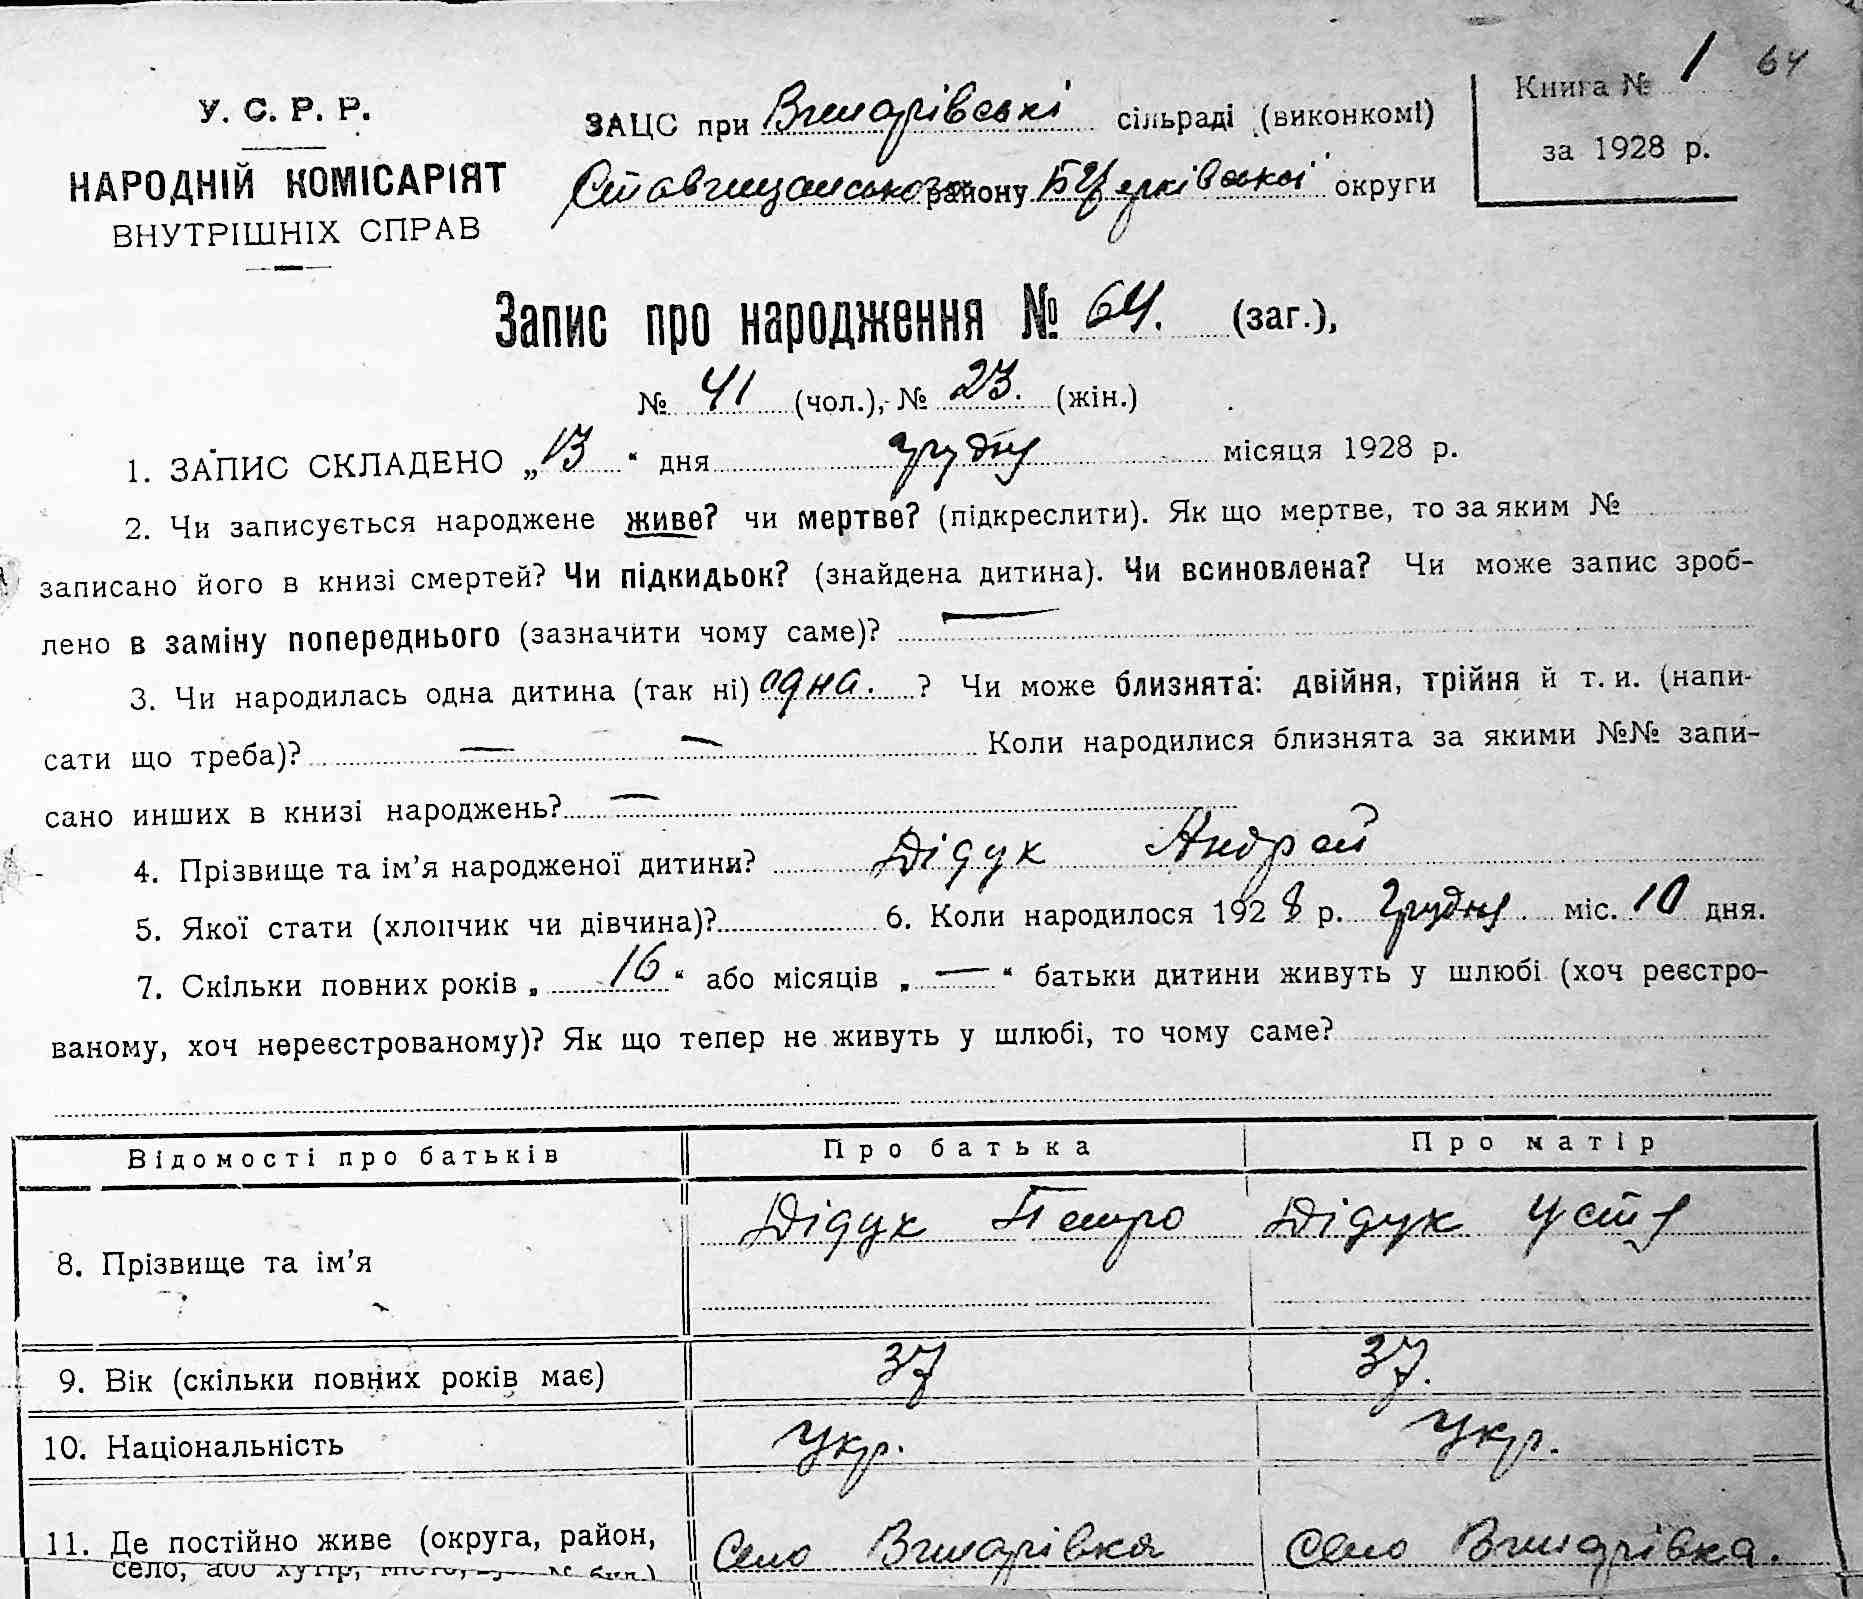 Книга № 1 64
за 1928 р.
У. С. Р. Р.
НАРОДНІЙ КОМІСАРІЯТ
ВНУТРІШНІХ СПРАВ
ЗАЦС при сільраді (виконкомі)
Ставищанського району Б Церківської округи
Запис про народження № 64. (заг.),
№ 41 (чол.), № 23. (жін.)
1. ЗАПИС СКЛАДЕНО „13“ дня грудня місяця 1928 р.
2. Чи записується народжене живе? чи мертве? (підкреслити). Як що мертве, то за яким №
записано його в книзі смертей? Чи підкидьок? (знайдена дитина). Чи всиновлена? Чи може запис зроб-
лено в заміну попереднього (зазначити чому саме)? —
3. Чи народилась одна дитина (так ні) одна. ? Чи може близнята: двійня, трійня й т. и. (напи-
сати що треба)? — — Коли народилися близнята за якими №№ запи-
сано инших в книзі народжень? —
4. Прізвище та ім’я народженої дитини? Дідук Андрей
5. Якої стати (хлопчик чи дівчина)? 6. Коли народилося 1928 р. Грудня міс. 10 дня.
7. Скільки повних років „16“ або місяців „—“ батьки дитини живуть у шлюбі (хоч реєстро-
ваному, хоч нереєстрованому)? Як що тепер не живуть у шлюбі, то чому саме?
Відомості про батьків Про батька Про матір
8. Прізвище та ім’я Дідук Петро Дідук Устя
9. Вік (скільки повних років має) 37 37.
10. Національність Укр. Укр.
11. Де постійно живе (округа, район, Село Село
село, або хутір,